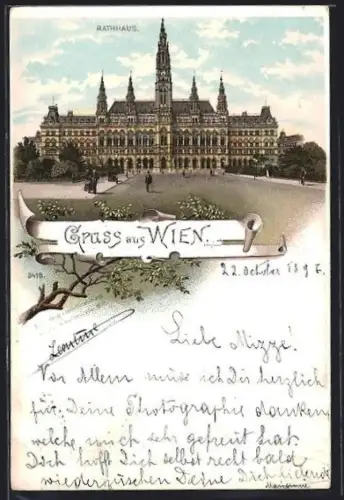 RATHHAUS.
Gruss aus WIEN.
22. October 1897.
3419.
Leontine
Liebe Mizze!
Vor Allem muss ich Dir herzlich
für Deine Photographie danken,
welche mich sehr gefreut hat.
Ich hoffe Dich selbst recht bald
wiederzusehen Deine Dich liebende